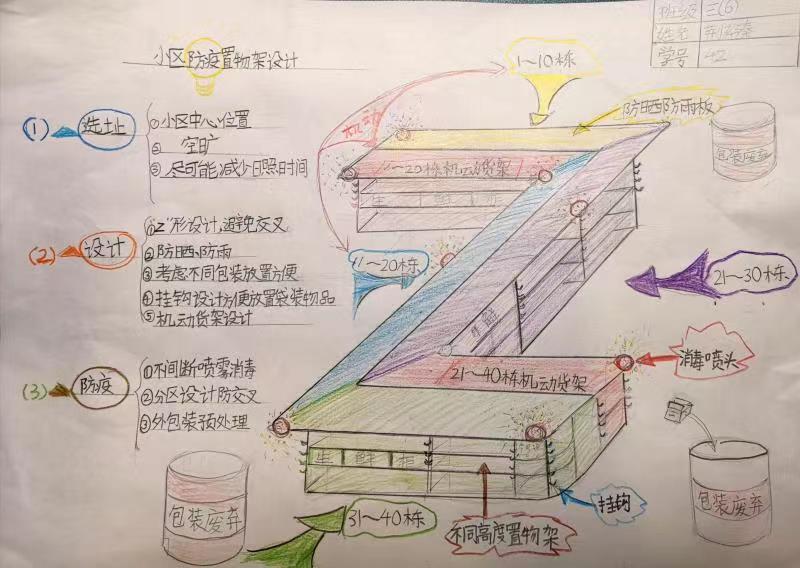 班级 三(6)
姓名
学号 42
小区防疫置物架设计
(1) 选址
①小区中心位置
② 空旷
③ 尽可能减少日照时间
(2) 设计
①"Z"形设计,避免交叉
②防晒、防雨
③考虑不同包装放置方便
④挂钩设计方便放置袋装物品
⑤机动货架设计
(3) 防疫
①不间断喷雾消毒
②分区设计防交叉
③外包装预处理
1~10栋
机动
防晒防雨板
包装废弃
1~20栋机动货架
生 鲜
11~20栋
21~30栋
生鲜
消毒喷头
21~40栋机动货架
生 鲜 柜
包装废弃
包装废弃
挂钩
31~40栋
不同高度置物架